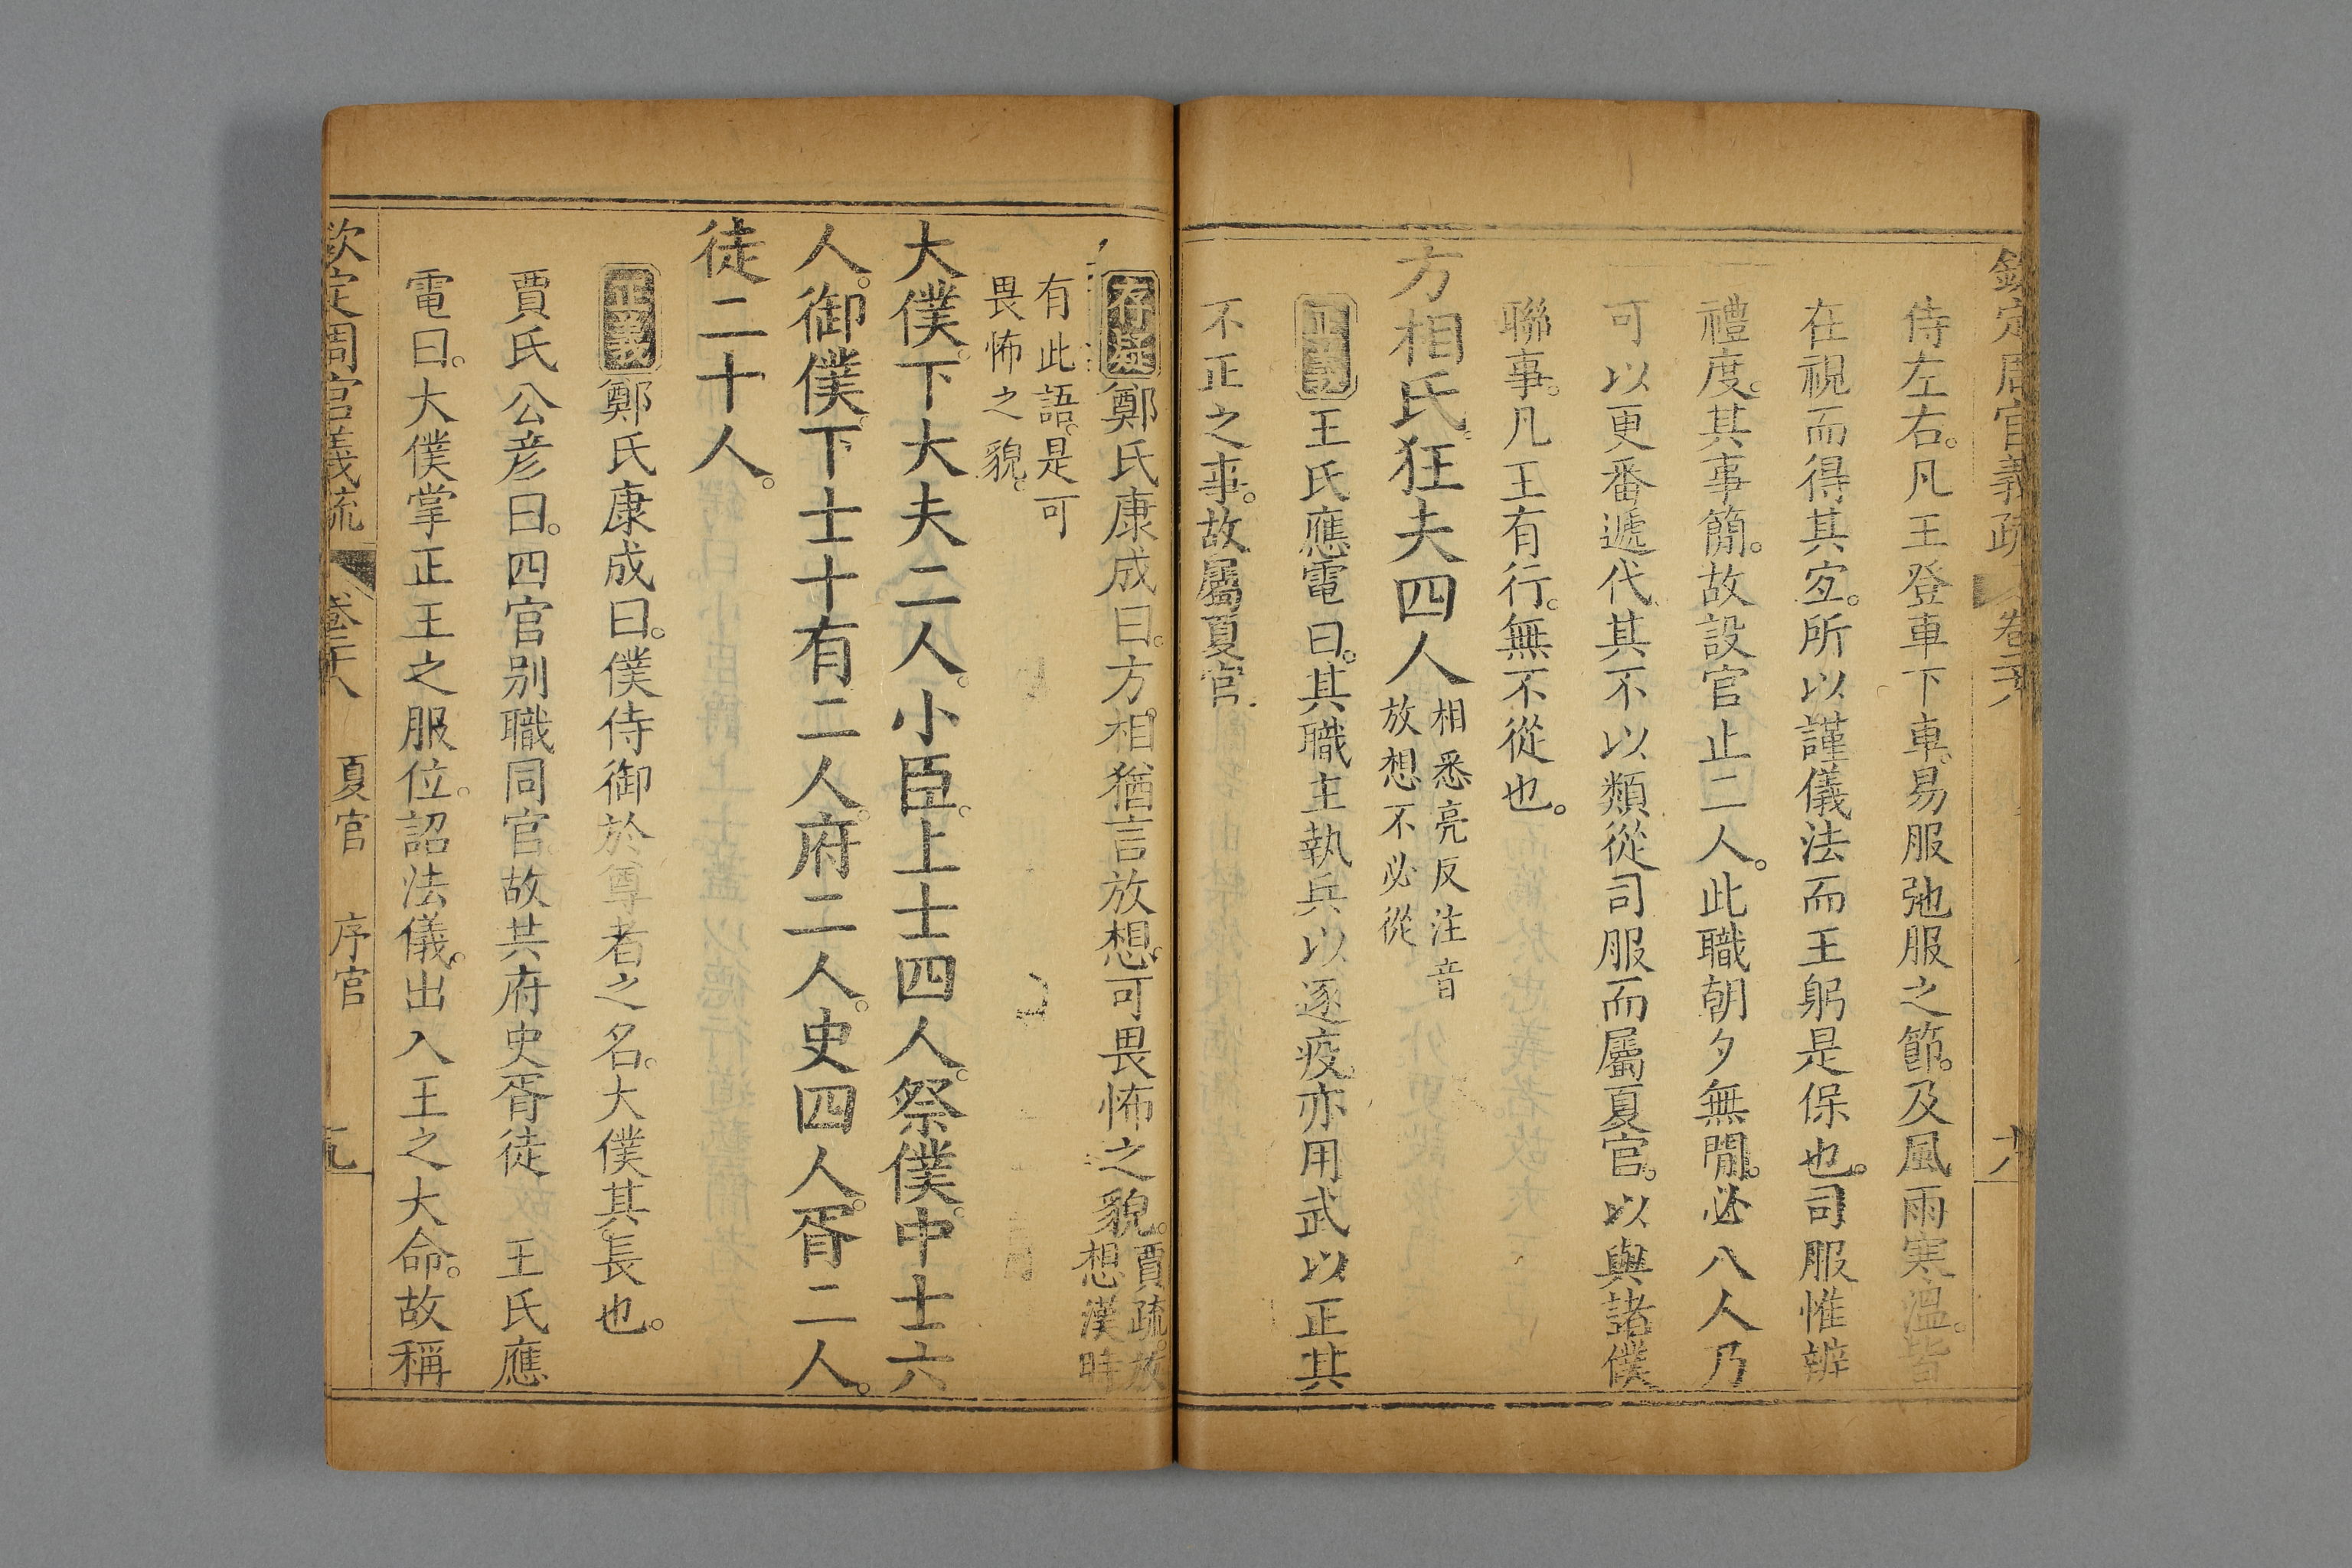 欽定周官義疏 卷二十八 十八
侍左右。凡王登車下車。易服弛服之節。及風雨寒溫。皆
在視而得其宜。所以謹儀法而王躬是保也。司服惟辨
禮度。其事簡。故設官止二人。此職朝夕無閒。必八人乃
可以更番遞代。其不以類從司服而屬夏官。以與諸僕
聯事。凡王有行。無不從也。
方相氏。狂夫四人
相悉亮反注音
放想不必從
正義王氏應電曰。其職主執兵以逐疫。亦用武以正其
不正之事。故屬夏官。
存疑鄭氏康成曰。方相猶言放想。可畏怖之貌。
賈疏。放
想漢時
有此語。是可
畏怖之貌。
大僕。下大夫二人。小臣。上士四人。祭僕。中士六
人。御僕。下士十有二人。府二人。史四人。胥二人。
徒二十人。
正義鄭氏康成曰。僕侍御於尊者之名。大僕其長也。
賈氏公彥曰。四官别職同官。故共府史胥徒 王氏應
電曰。大僕掌正王之服位。詔法儀。出入王之大命。故稱
欽定周官義疏 卷二十八 夏官 序官